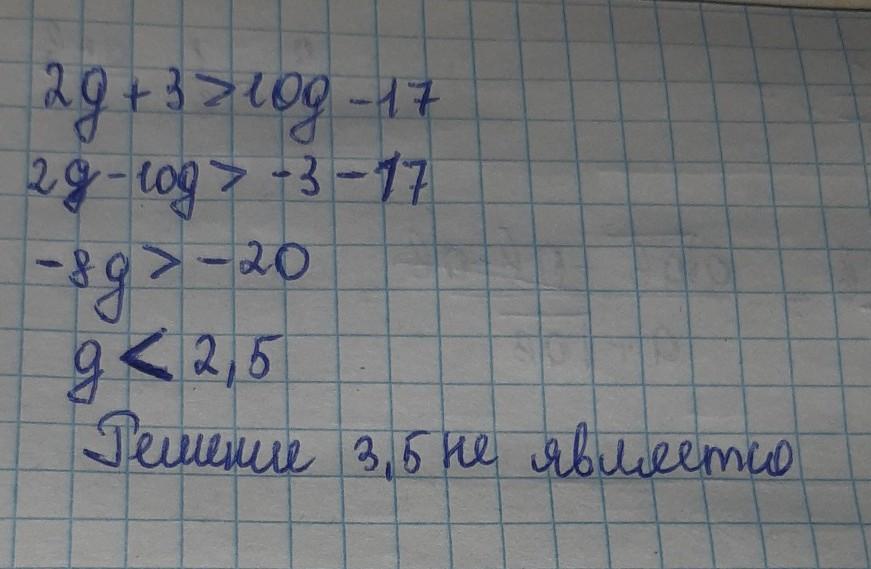 2g + 3 > 10g - 17
2g - 10g > -3 - 17
-8g > -20
g < 2,5
Решение 3,5 не является